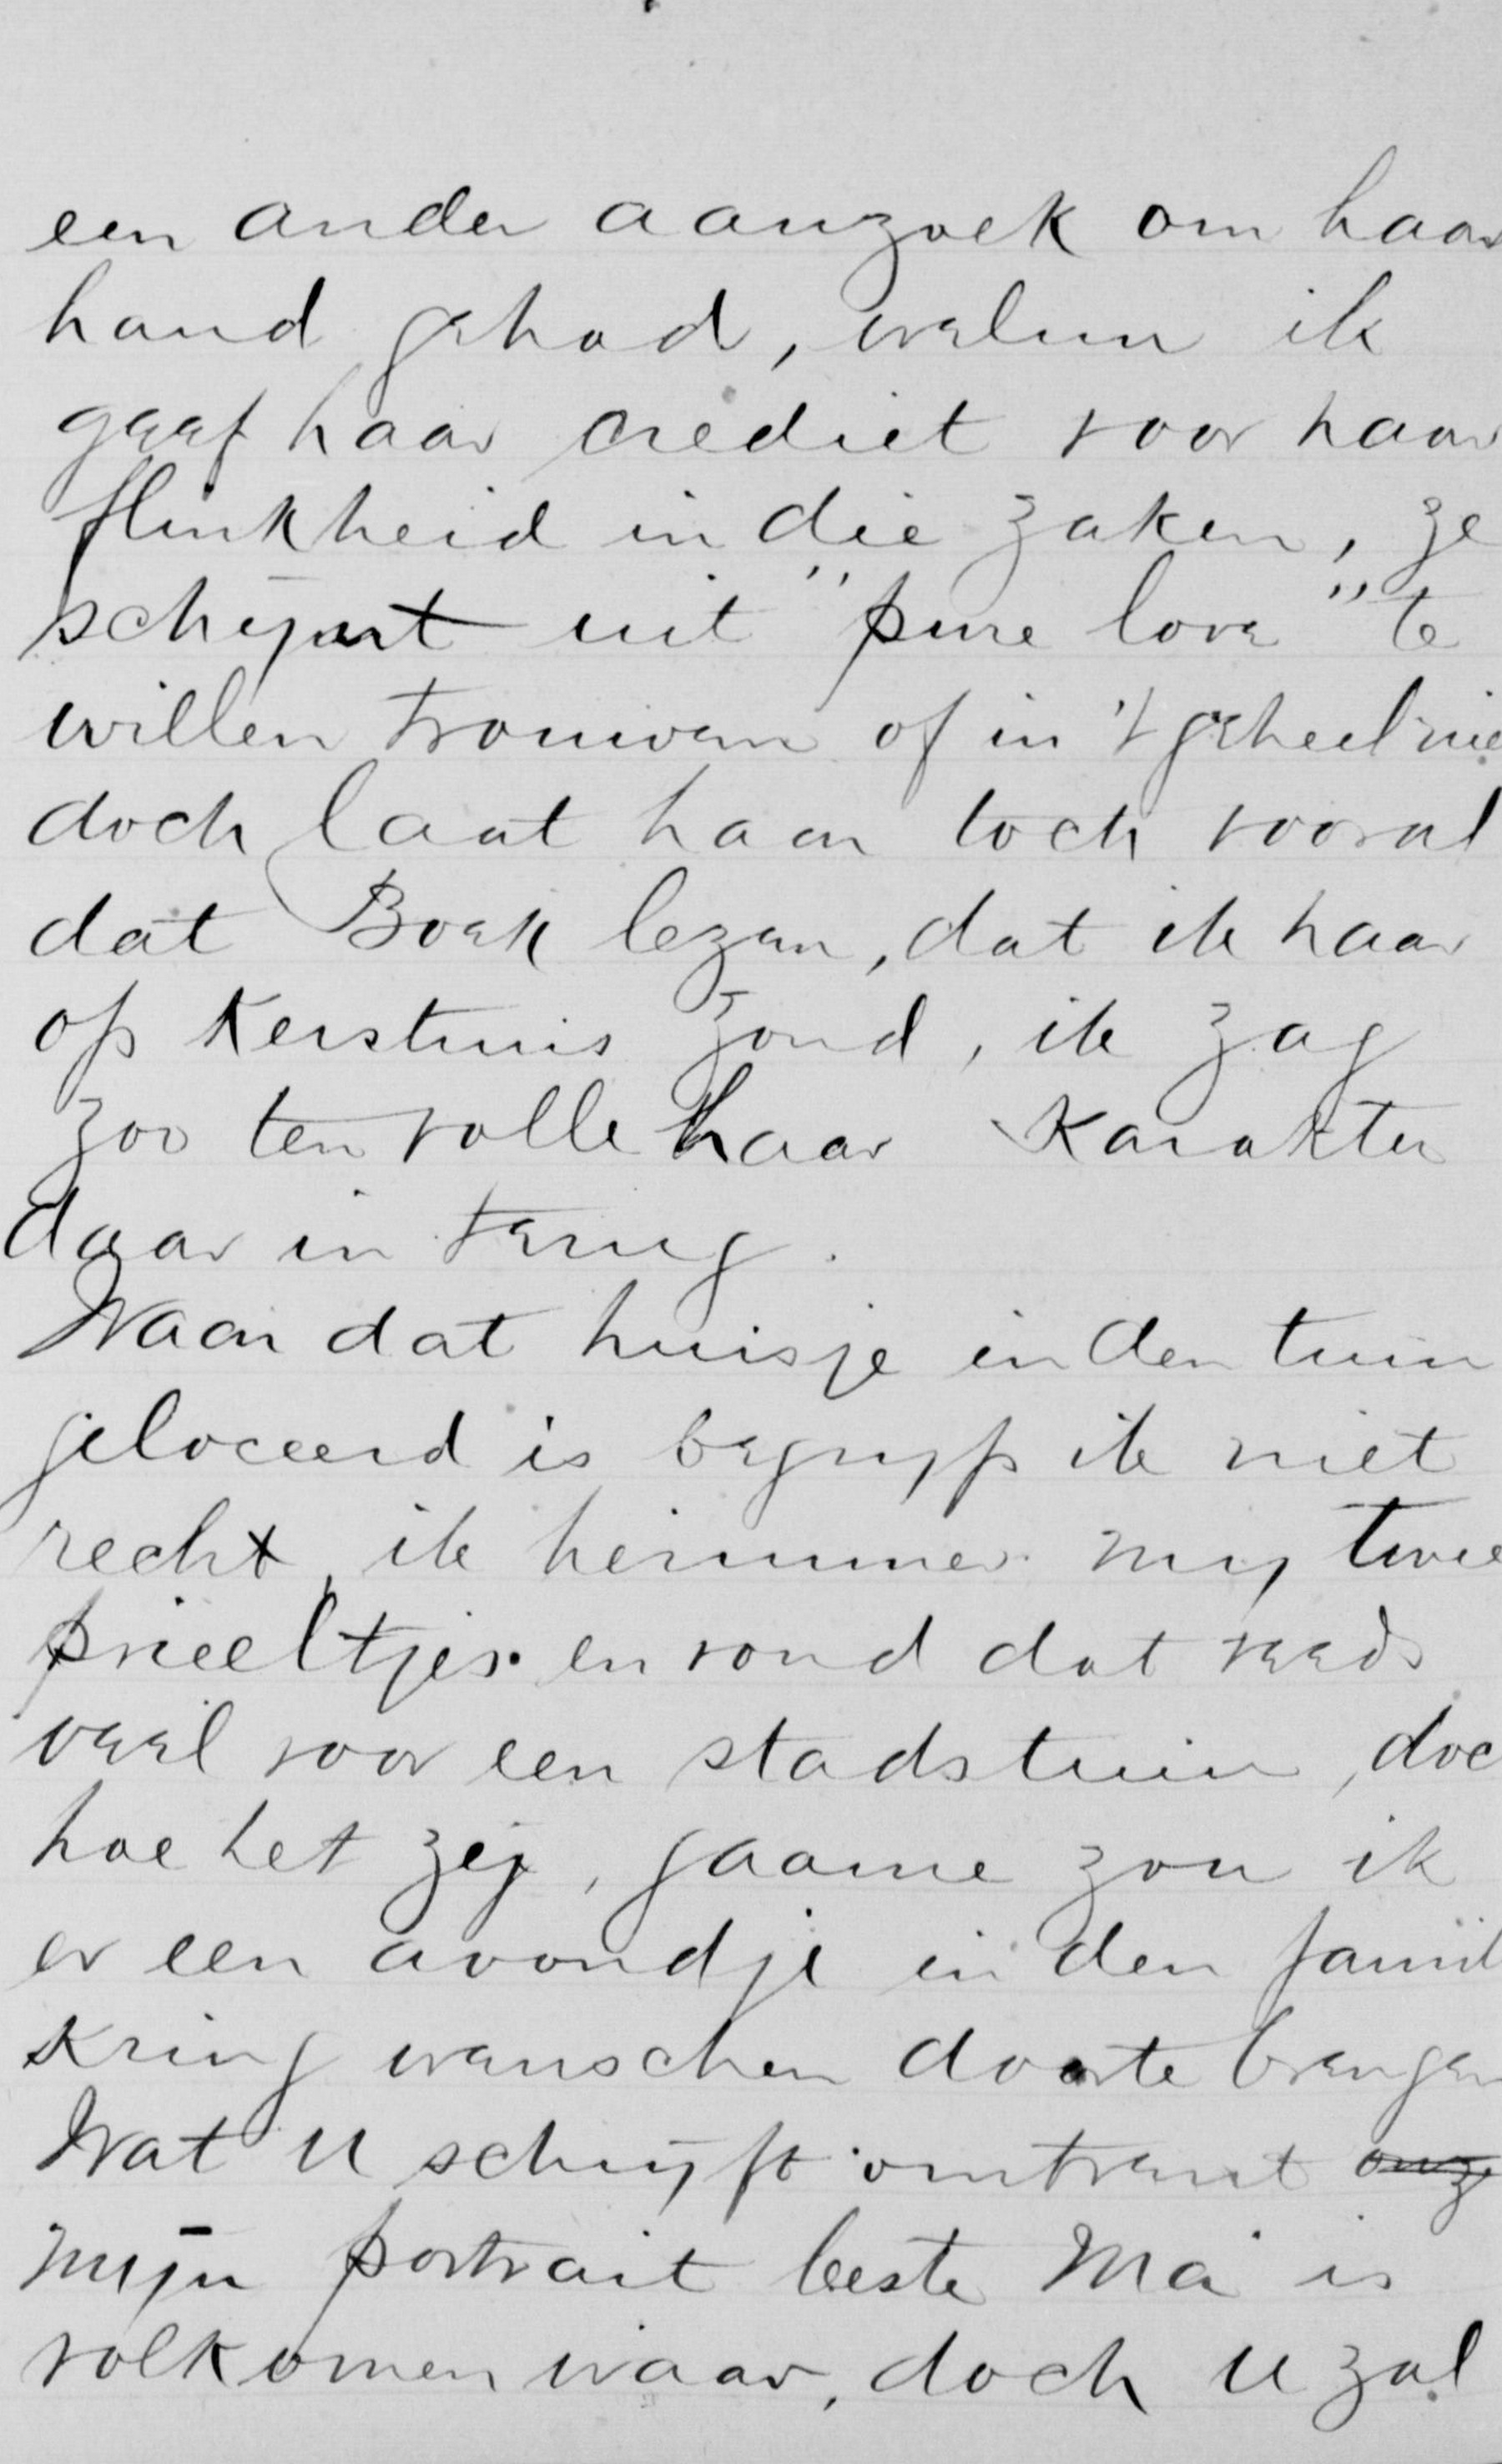 een ander aanzoek om haar
hand gehad, welnu ik
geef haar crediet voor haar
flinkheid in die zaken, ze
schynt uit "pure love" te
willen trouwen of in 't geheel nie
doch laat haar toch vooral
dat Boek lezen, dat ik haar
op Kerstmis zond, ik zag
zoo ten volle haar Karakter
daar in terug.
Waar dat huisje in den tuin
geloceerd is begryp ik niet
recht, ik herinner my twee
prieeltjes en vond dat reeds
veel voor een stadstuin, doc
hoe het zij, gaarne zou ik
er een avondje in den famil
Kring wenschen door te brengen
Wat U schryft omtrent onze
mijn portrait beste Ma is
volkomen waar, doch U zal